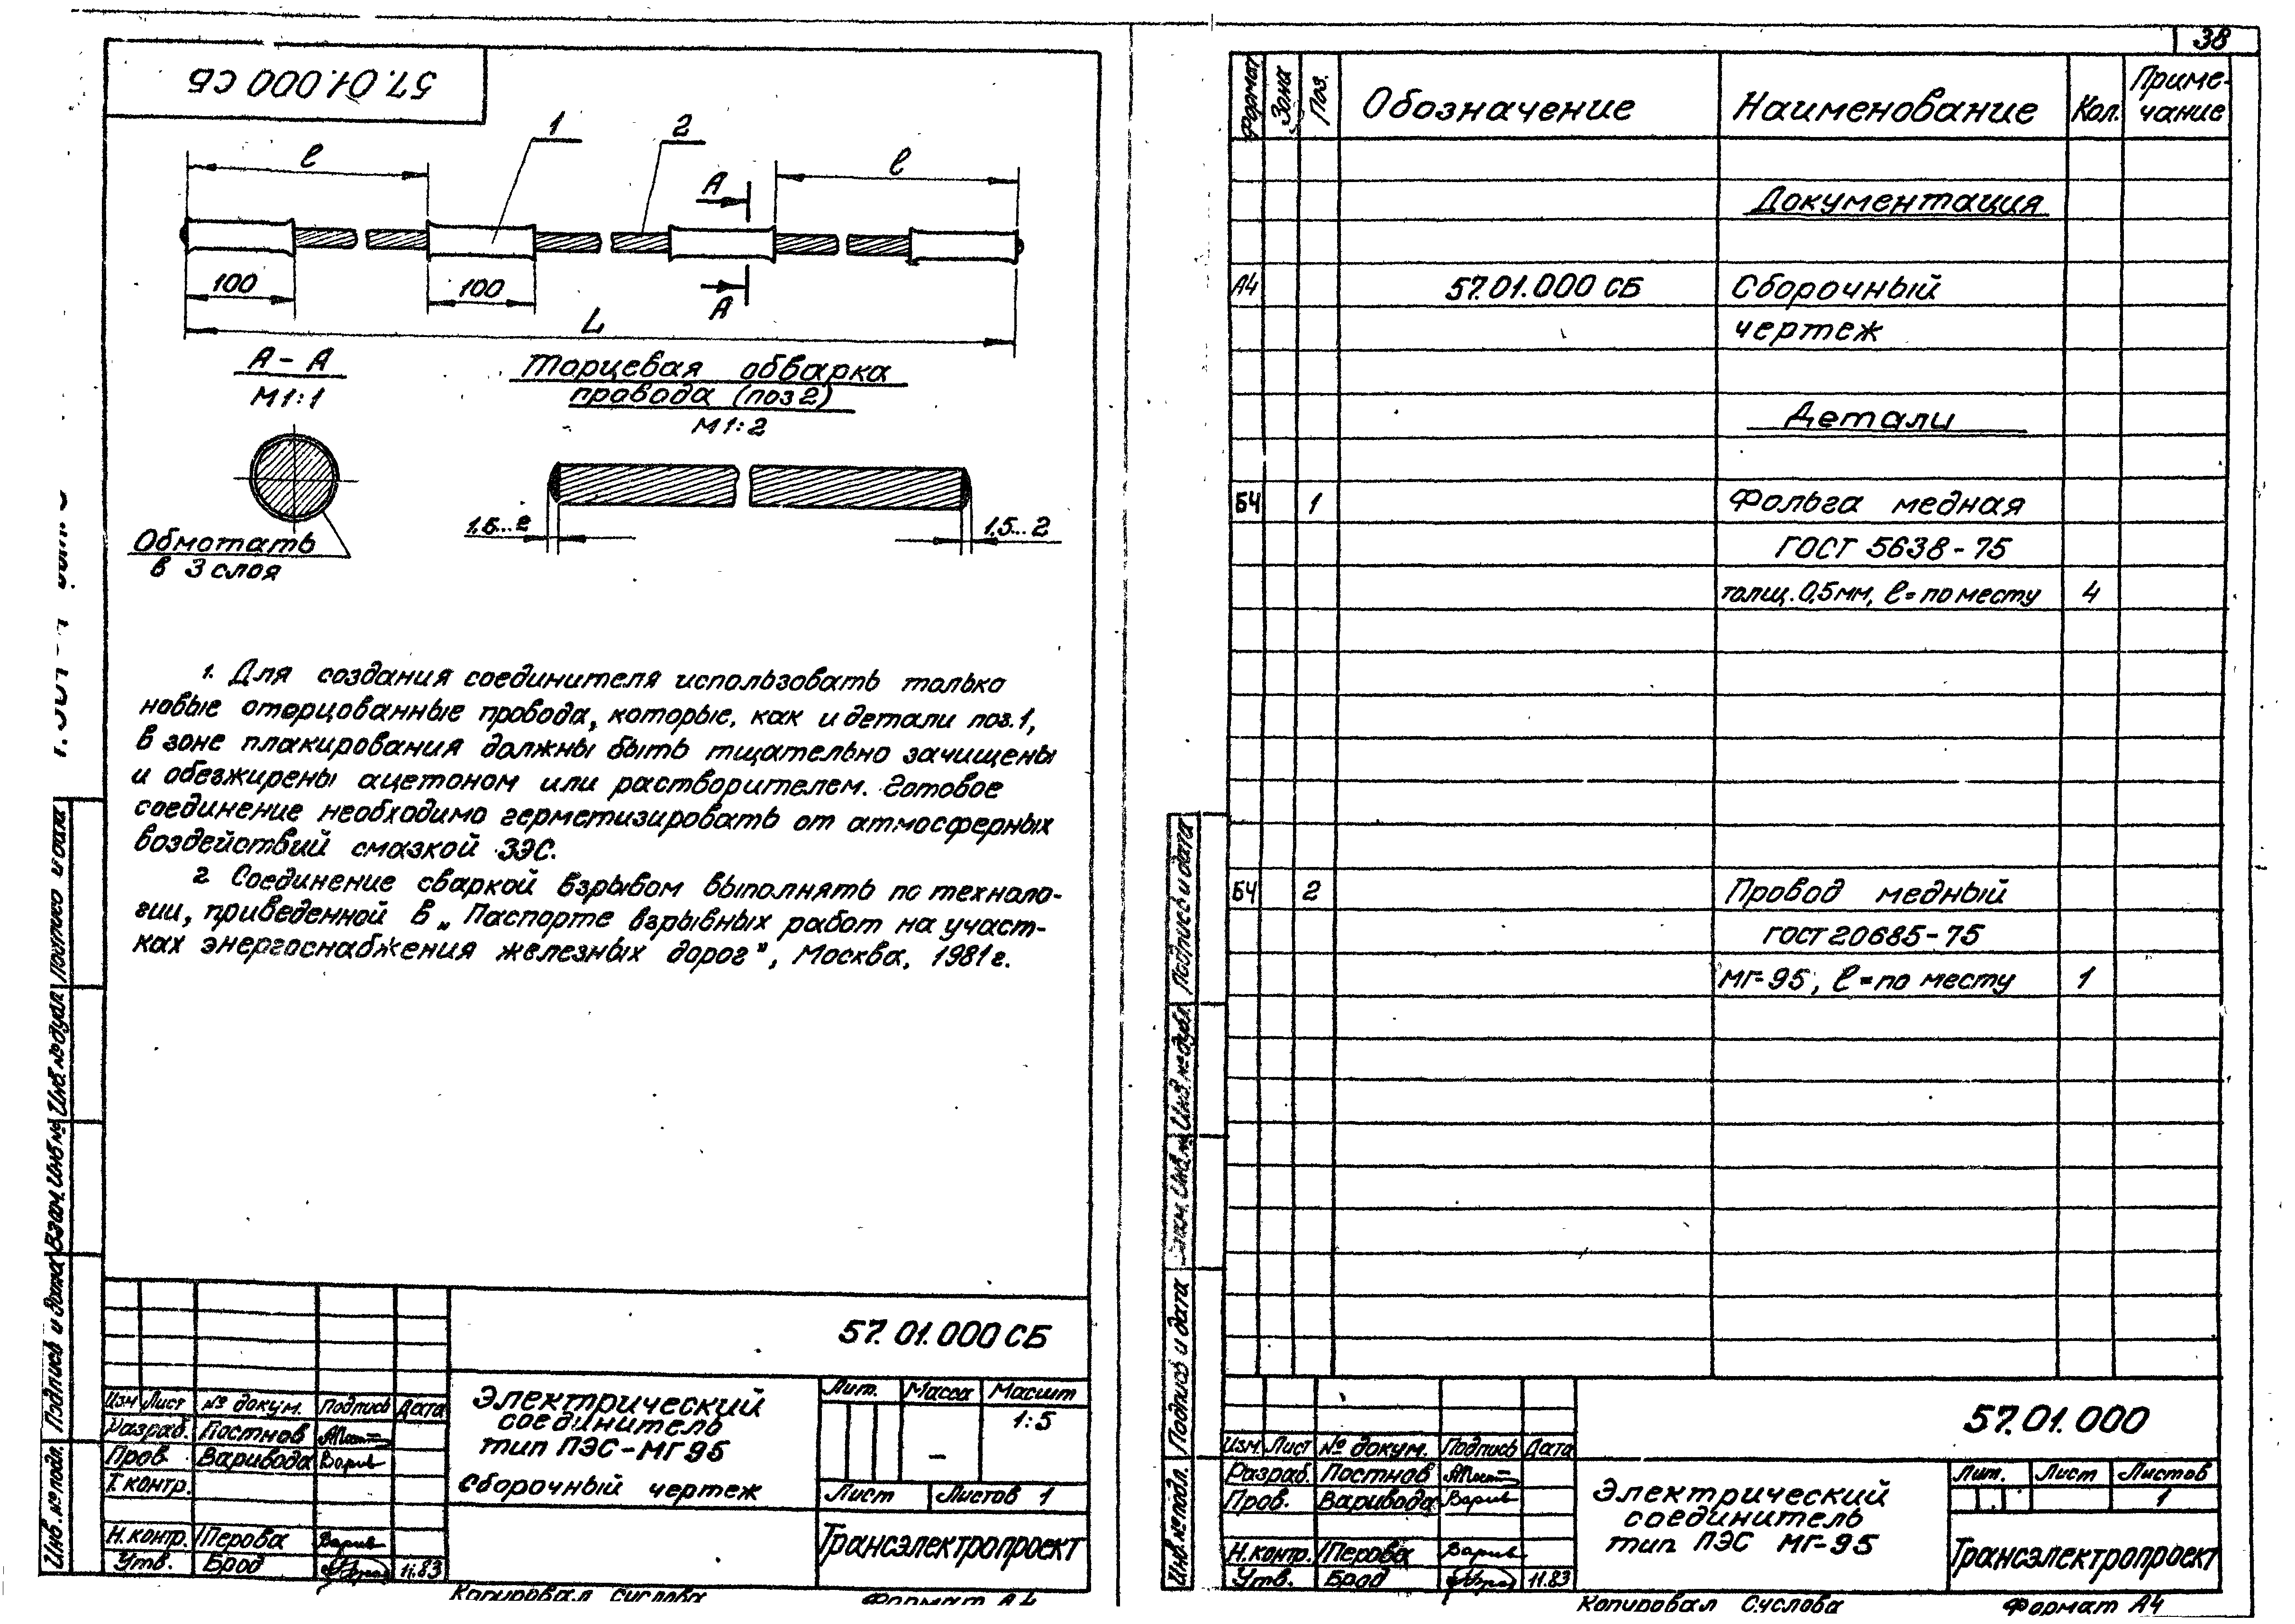 57.01.000 СБ
1
2
ℓ
ℓ
А
100
100
А
L
А - А
М1:1
Торцевая обварка
провода (поз 2)
М1:2
1,5...2
1,5...2
Обмотать
в 3 слоя
1. Для создания соединителя использовать только
новые оторцованные провода, которые, как и детали поз.1,
в зоне плакирования должны быть тщательно зачищены
и обезжирены ацетоном или растворителем. Готовое
соединение необходимо герметизировать от атмосферных
воздействий смазкой ЗЭС.
2 Соединение сваркой взрывом выполнять по техноло-
гии, приведенной в „Паспорте взрывных работ на участ-
ках энергоснабжения железных дорог", Москва, 1981г.
Инв. № подл. Подпись и дата Взам. Инв № Инв. № дубл Подпись и дата
57.01.000 СБ
Изм Лист № докум. Подпись Дата
Разраб. Постнов
Пров. Варивода Варив
Т. контр.
Н. контр. Перова Варив
Утв. Брод 11.83
Электрический
соединитель
тип ПЭС-МГ95
Сборочный чертеж
Лит. Масса Масшт
– 1:5
Лист Листов 1
Трансэлектропроект
Копировал Суслова Формат А4
38
Формат Зона Поз. Обозначение Наименование Кол. Приме-
чание
Документация
А4 57.01.000 СБ Сборочный
чертеж
Детали
БЧ 1 Фольга медная
ГОСТ 5638-75
толщ. 0,5мм, ℓ=по месту 4
БЧ 2 Провод медный
ГОСТ 20685-75
МГ-95, ℓ=по месту 1
Инв. № подл. Подпись и дата Взам. Инв. № Инв. № дубл. Подпись и дата
57.01.000
Изм Лист № докум. Подпись Дата
Разраб. Постнов
Пров. Варивода Варив
Н. контр. Перова Варив
Утв. Брод 11.83
Электрический
соединитель
тип ПЭС МГ-95
Лит. Лист Листов
1
Трансэлектропроект
Копировал Суслова Формат А4